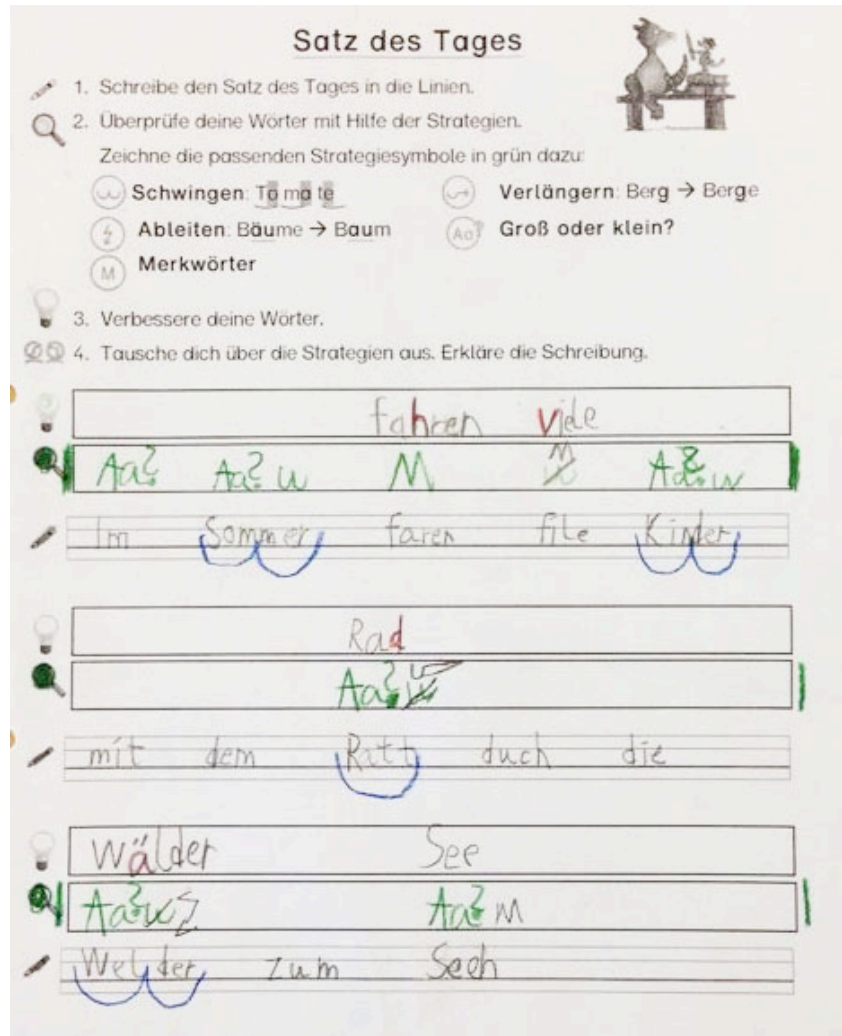 Satz des Tages
1. Schreibe den Satz des Tages in die Linien.
2. Überprüfe deine Wörter mit Hilfe der Strategien.
Zeichne die passenden Strategiesymbole in grün dazu:
Schwingen: To ma te Verlängern: Berg → Berge
Ableiten: Bäume → Baum Aa? Groß oder klein?
M Merkwörter
3. Verbessere deine Wörter.
4. Tausche dich über die Strategien aus. Erkläre die Schreibung.
fahren viele
Aa? Aa? M M Aa?
Im Sommer faren file Kinder
Rad
Aa?
mit dem Ratt duch die
Wälder See
Aa? Aa? M
Welder zum Seeh